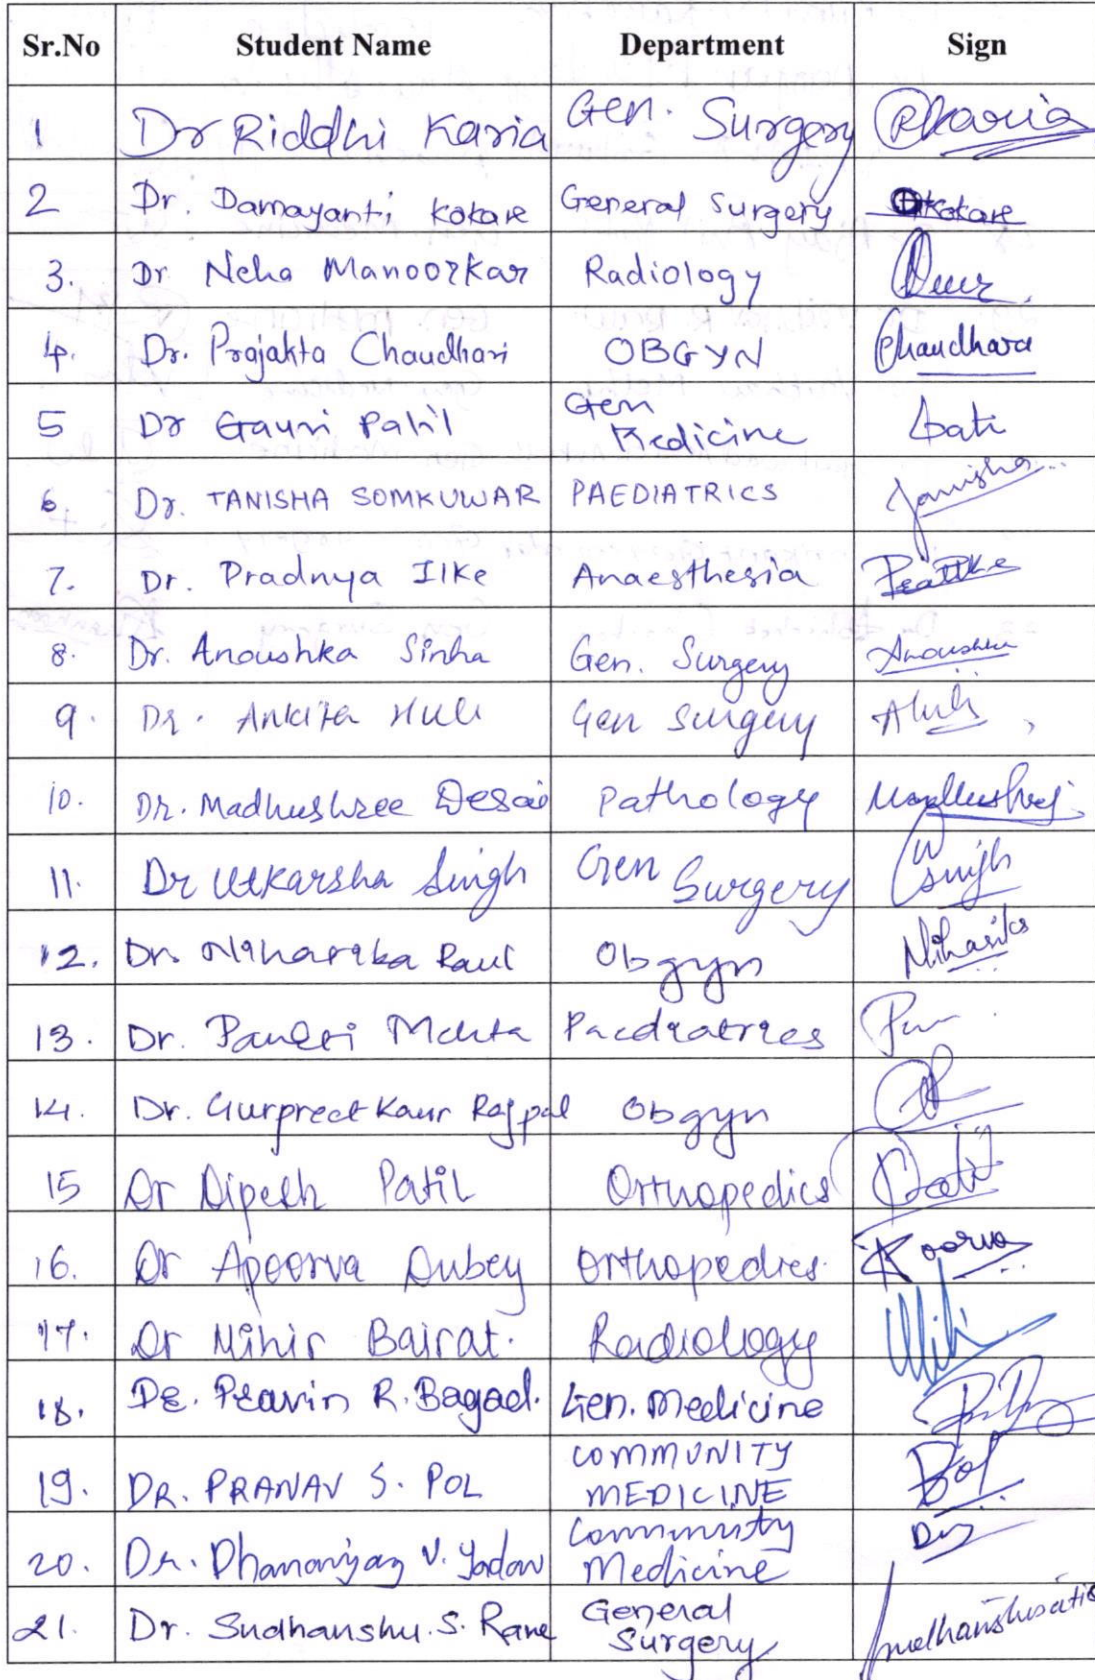 Sr.No Student Name Department Sign
1 Dr Riddhi Karia Gen. Surgery RKaria
2 Dr. Damayanti Kokare General Surgery DKokare
3. Dr Neha Manoorkar Radiology
4. Dr. Prajakta Chaudhari OBGYN
5 Dr Gauri Patil Gen Medicine
6. Dr. TANISHA SOMKUWAR PAEDIATRICS Tanisha
7. Dr. Pradnya Ilke Anaesthesia
8. Dr. Anoushka Sinha Gen. Surgery Anoushka
9. Dr. Ankita Huli Gen Surgery AHuli
10. Dr. Madhushree Desai Pathology
11. Dr Utkarsha Singh Gen Surgery USingh
12. Dr. Niharika Raul Obgyn Niharika
13. Dr. Mehta Paediatrics
14. Dr. Gurpreet Kaur Rajpal Obgyn
15 Dr Dipesh Patil Orthopedics
16. Dr Apoorva Dubey Orthopedics.
17. Dr Mihir Bairat. Radiology
18. Dr. Pravin R. Bagad. Gen. Medicine
19. DR. PRANAV S. POL COMMUNITY MEDICINE Pol
20. Dr. Dhananjay V. Yadav Community Medicine
21. Dr. Sudhanshu. S. Rane General Surgery